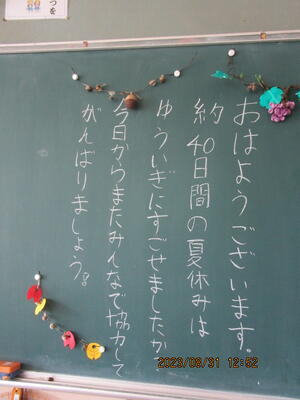 つを
おはようございます。
約40日間の夏休みは
ゆういぎにすごせましたか。
今日からまたみんなで協力して
がんばりましょう。
2023/08/31 12:52